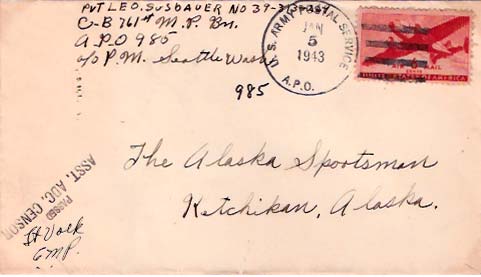 PVT LEO. SUSBAUER NO 39-313-357
C-B 761st M.P. Bn.
A.P.O 985
c/o P.M. Seattle Wash
985
U.S. ARMY POSTAL SERVICE
JAN
5
1943
A.P.O.
AIR MAIL
UNITED STATES OF AMERICA
The Alaska Sportsman
Ketchikan, Alaska.
PASSED
ASST. ADC. CENSOR
Lt Volk
CMP.